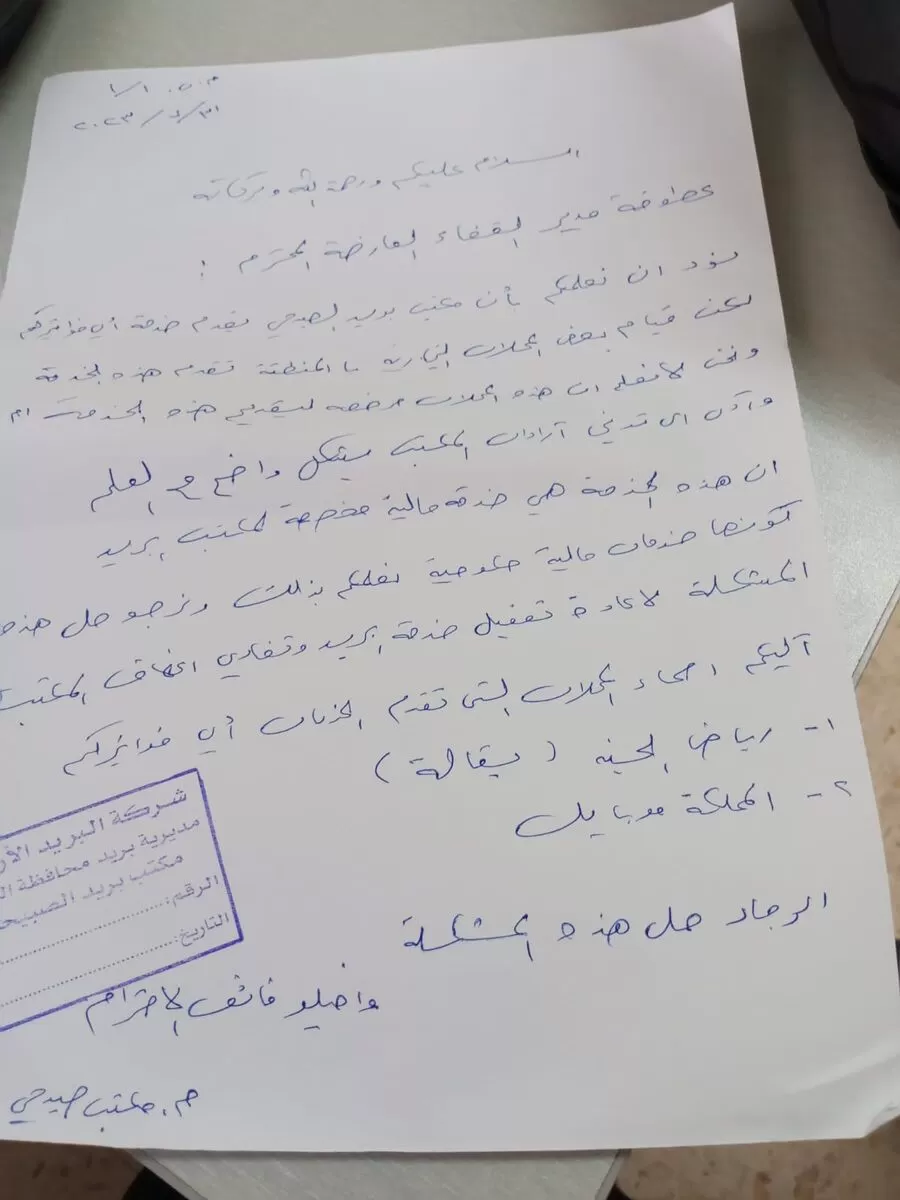 ٢٠٢٣/٨/٣١
السلام عليكم ورحمة الله وبركاته
عطوفة مدير القضاء العارضة المحترم :
نود ان نعلمكم بأن مكتب بريد الصبيحي تقدم خدمة أي فواتيركم
لكن قيام بعض المحلات التجارية بالمنطقة تقدم هذه الخدمة
ونحن لا نعلم ان هذه المحلات مرخصه لتقديم هذه الخدمات ام
وأدى الى تدني آرادات المكتب بشكل واضح مع العلم
ان هذه الخدمة هي خدمة مالية مخصصة لمكتب بريد
كونها خدمات مالية حكومية نعلمكم بذلك ونرجو حل هذه
المشكلة لاعادة تفعيل خدمة البريد وتفادي المكتب
آليكم اسماء المحلات التي تقدم الخدمات أي فواتيركم
١- رياض الجنه (بقالة)
٢- المملكة موبايل
الرجاء حل هذه المشكلة
واقبلو فائق الاحترام
شركة البريد الأر
مديرية بريد محافظة ال
مكتب بريد الصبيح
الرقم:
التاريخ:
م. مكتب صبيحي